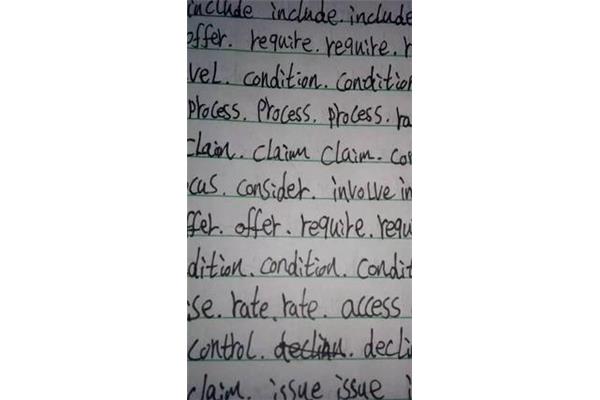 include include. include
offer. require. require. r
vel. condition. condition
process. Process. process. ra
claim. claium claim. co
cus. consider. involve in
ffer. offer. require. requ
dition. condition. condit
se. rate. rate. access
control. declian. decli
claim. issue issue i